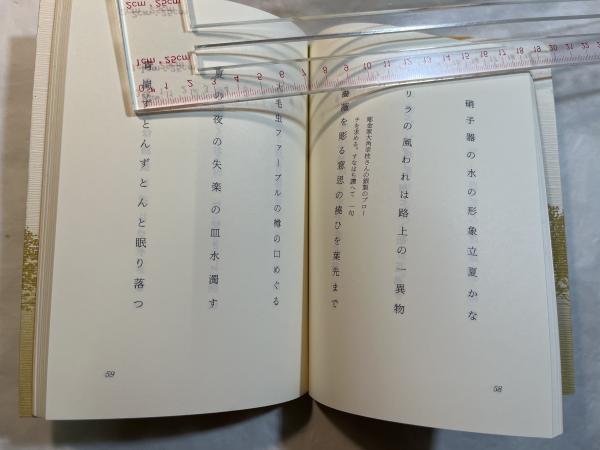 硝子器の水の形象立夏かな
リラの風われは路上の一異物
彫金家大角幸枝さんの銀製のブロー
チを求める。すなはち讃へて 一句
薔薇を彫る意思の撓ひを葉先まで
毛虫ファーブルの樽の口めぐる
夜の失楽の皿水濁す
ずとんずとんと眠り落つ
58
59
0 1 2 3 4 5 6 7 8 9 10 11 12 13 14 15 16 17 18 19 20 21 22
1cm 25cm
2cm 25cm